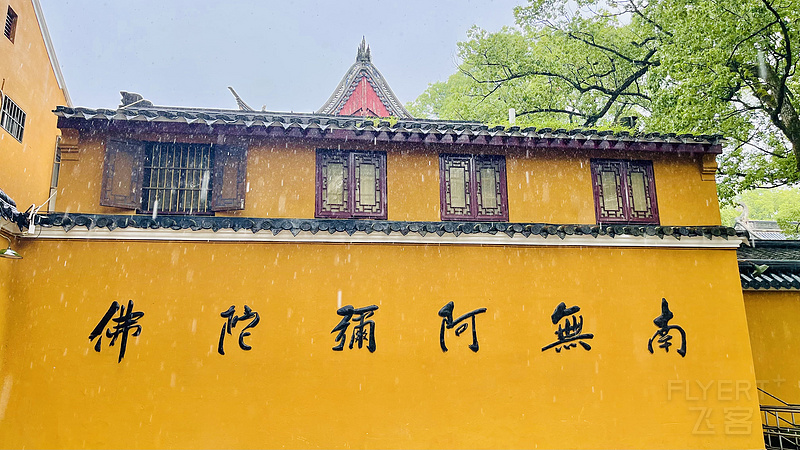 南無阿彌陀佛
FLYERT
飞客